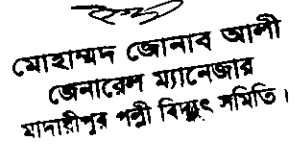 মোহাম্মদ জোনাব আলী
জেনারেল ম্যানেজার
মাদারীপুর পল্লী বিদ্যুৎ সমিতি।